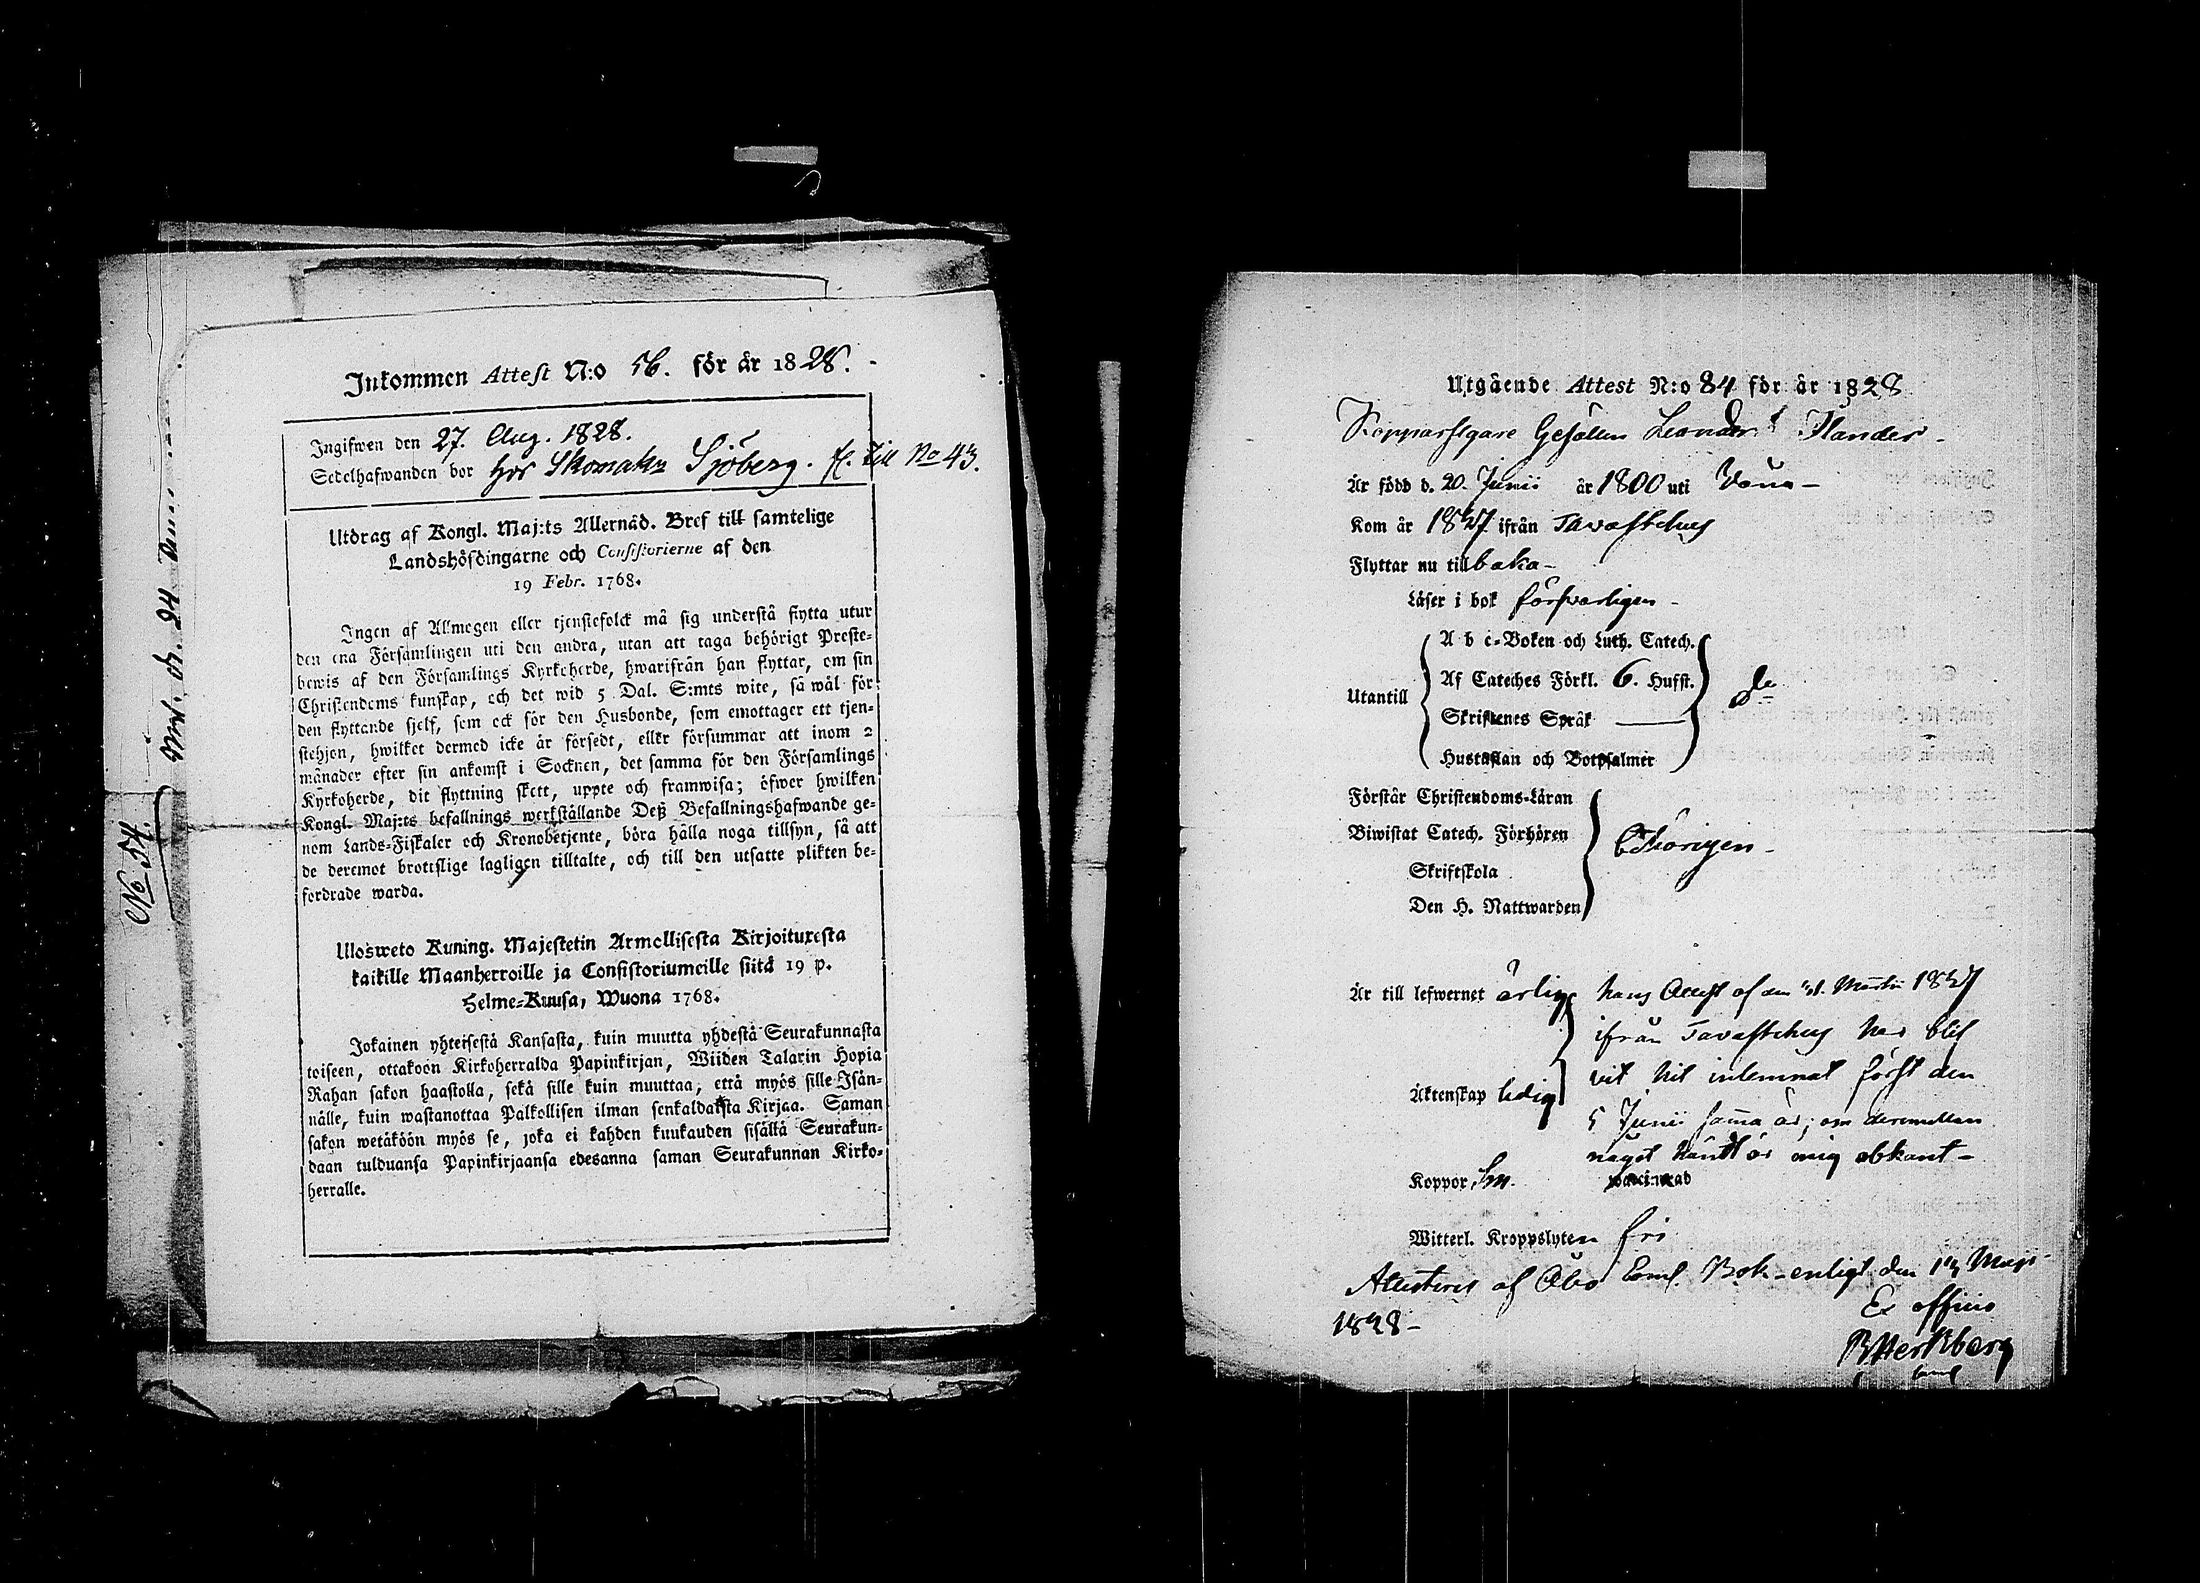 Inkommen Attest N:o 56. för år 1828.
Ingifwen den 27. Aug. 1828.
Sedelhafwanden bor hos Skomakr Sjöberg. fl. till No 43.
Utdrag af Kongl. Maj:ts Allernåd. Bref till samtelige
Landshöfdingarne och Consistorierne af den
19 Febr. 1768.
Ingen af Allmogen eller tjenstefolck må sig understå flytta utur
den ena Församlingen uti den andra, utan att taga behörigt Preste-
bewis af den Församlings Kyrkoherde, hwarifrån han flyttar, om sin
Christendoms kunskap, och det wid 5 Dal. S:mts wite, så wäl för
den flyttande sjelf, som ock för den Husbonde, som emottager ett tjen-
stehjon, hwilket dermed icke är försedt, eller försummar att inom 2
månader efter sin ankomst i Socknen, det samma för den Församlings
Kyrkoherde, dit flyttning skett, uppte och framwisa; öfwer hwilken
Kongl. Maj:ts befallnings werkställande Deß Befallningshafwande ge-
nom Lands-Fiskaler och Kronobetjente, böra hålla noga tillsyn, så att
de deremot brottslige lagligen tilltalte, och till den utsatte plikten be-
fordrade warda.
Ulosweto Kuning. Majestetin Armollisesta Kirjoituxesta
kaikille Maanherroille ja Consistoriumeille siitä 19 p.
Helme-Kuusa, Wuona 1768.
Jokainen yhteisestä Kansasta, kuin muutta yhdestä Seurakunnasta
toiseen, ottakoon Kirkoherralda Papinkirjan, Wiiden Talarin Hopia
Rahan sakon haastolla, sekä sille kuin muuttaa, että myös sille Isän-
nälle, kuin wastanottaa Palkollisen ilman senkaldaista Kirjaa. Saman
sakon wetäköön myös se, joka ei kahden kuukauden sisällä Seurakun-
daan tulduansa Papinkirjaansa edesanna saman Seurakunnan Kirko-
herralle.
No 54.
Utgående Attest N:o 84 för år 1828
Kopparslgare Gesällen Leander Flander
Är född d. 20. Junii år 1800 uti
Kom år 1827 ifrån Tavastehus
Flyttar nu tillbaka
Läser i bok försvarligen
Utantill
A b c-Boken och Luth. Catech.
Af Cateches Förkl. 6. Hufst.
Skriftenes Språk
Hustaflan och Botpsalmer
do
Förstår Christendoms-Läran
Biwistat Catech. Förhören
Skriftskola
Den H. Nattwarden
behörigen
Är till lefwernet ärlig, hans Attest af den Martii 1827
ifrån Tavastehus har blif
vit hit inlemnat först den
Äktenskap ledig
5 Junii samma år; om dermellan
något händt är mig obkant
Koppor
vaccinerad
Witterl. Kroppslyten fri
Attesteras af Åbo Bok enligt den 13 Maji
1828
Ex officio